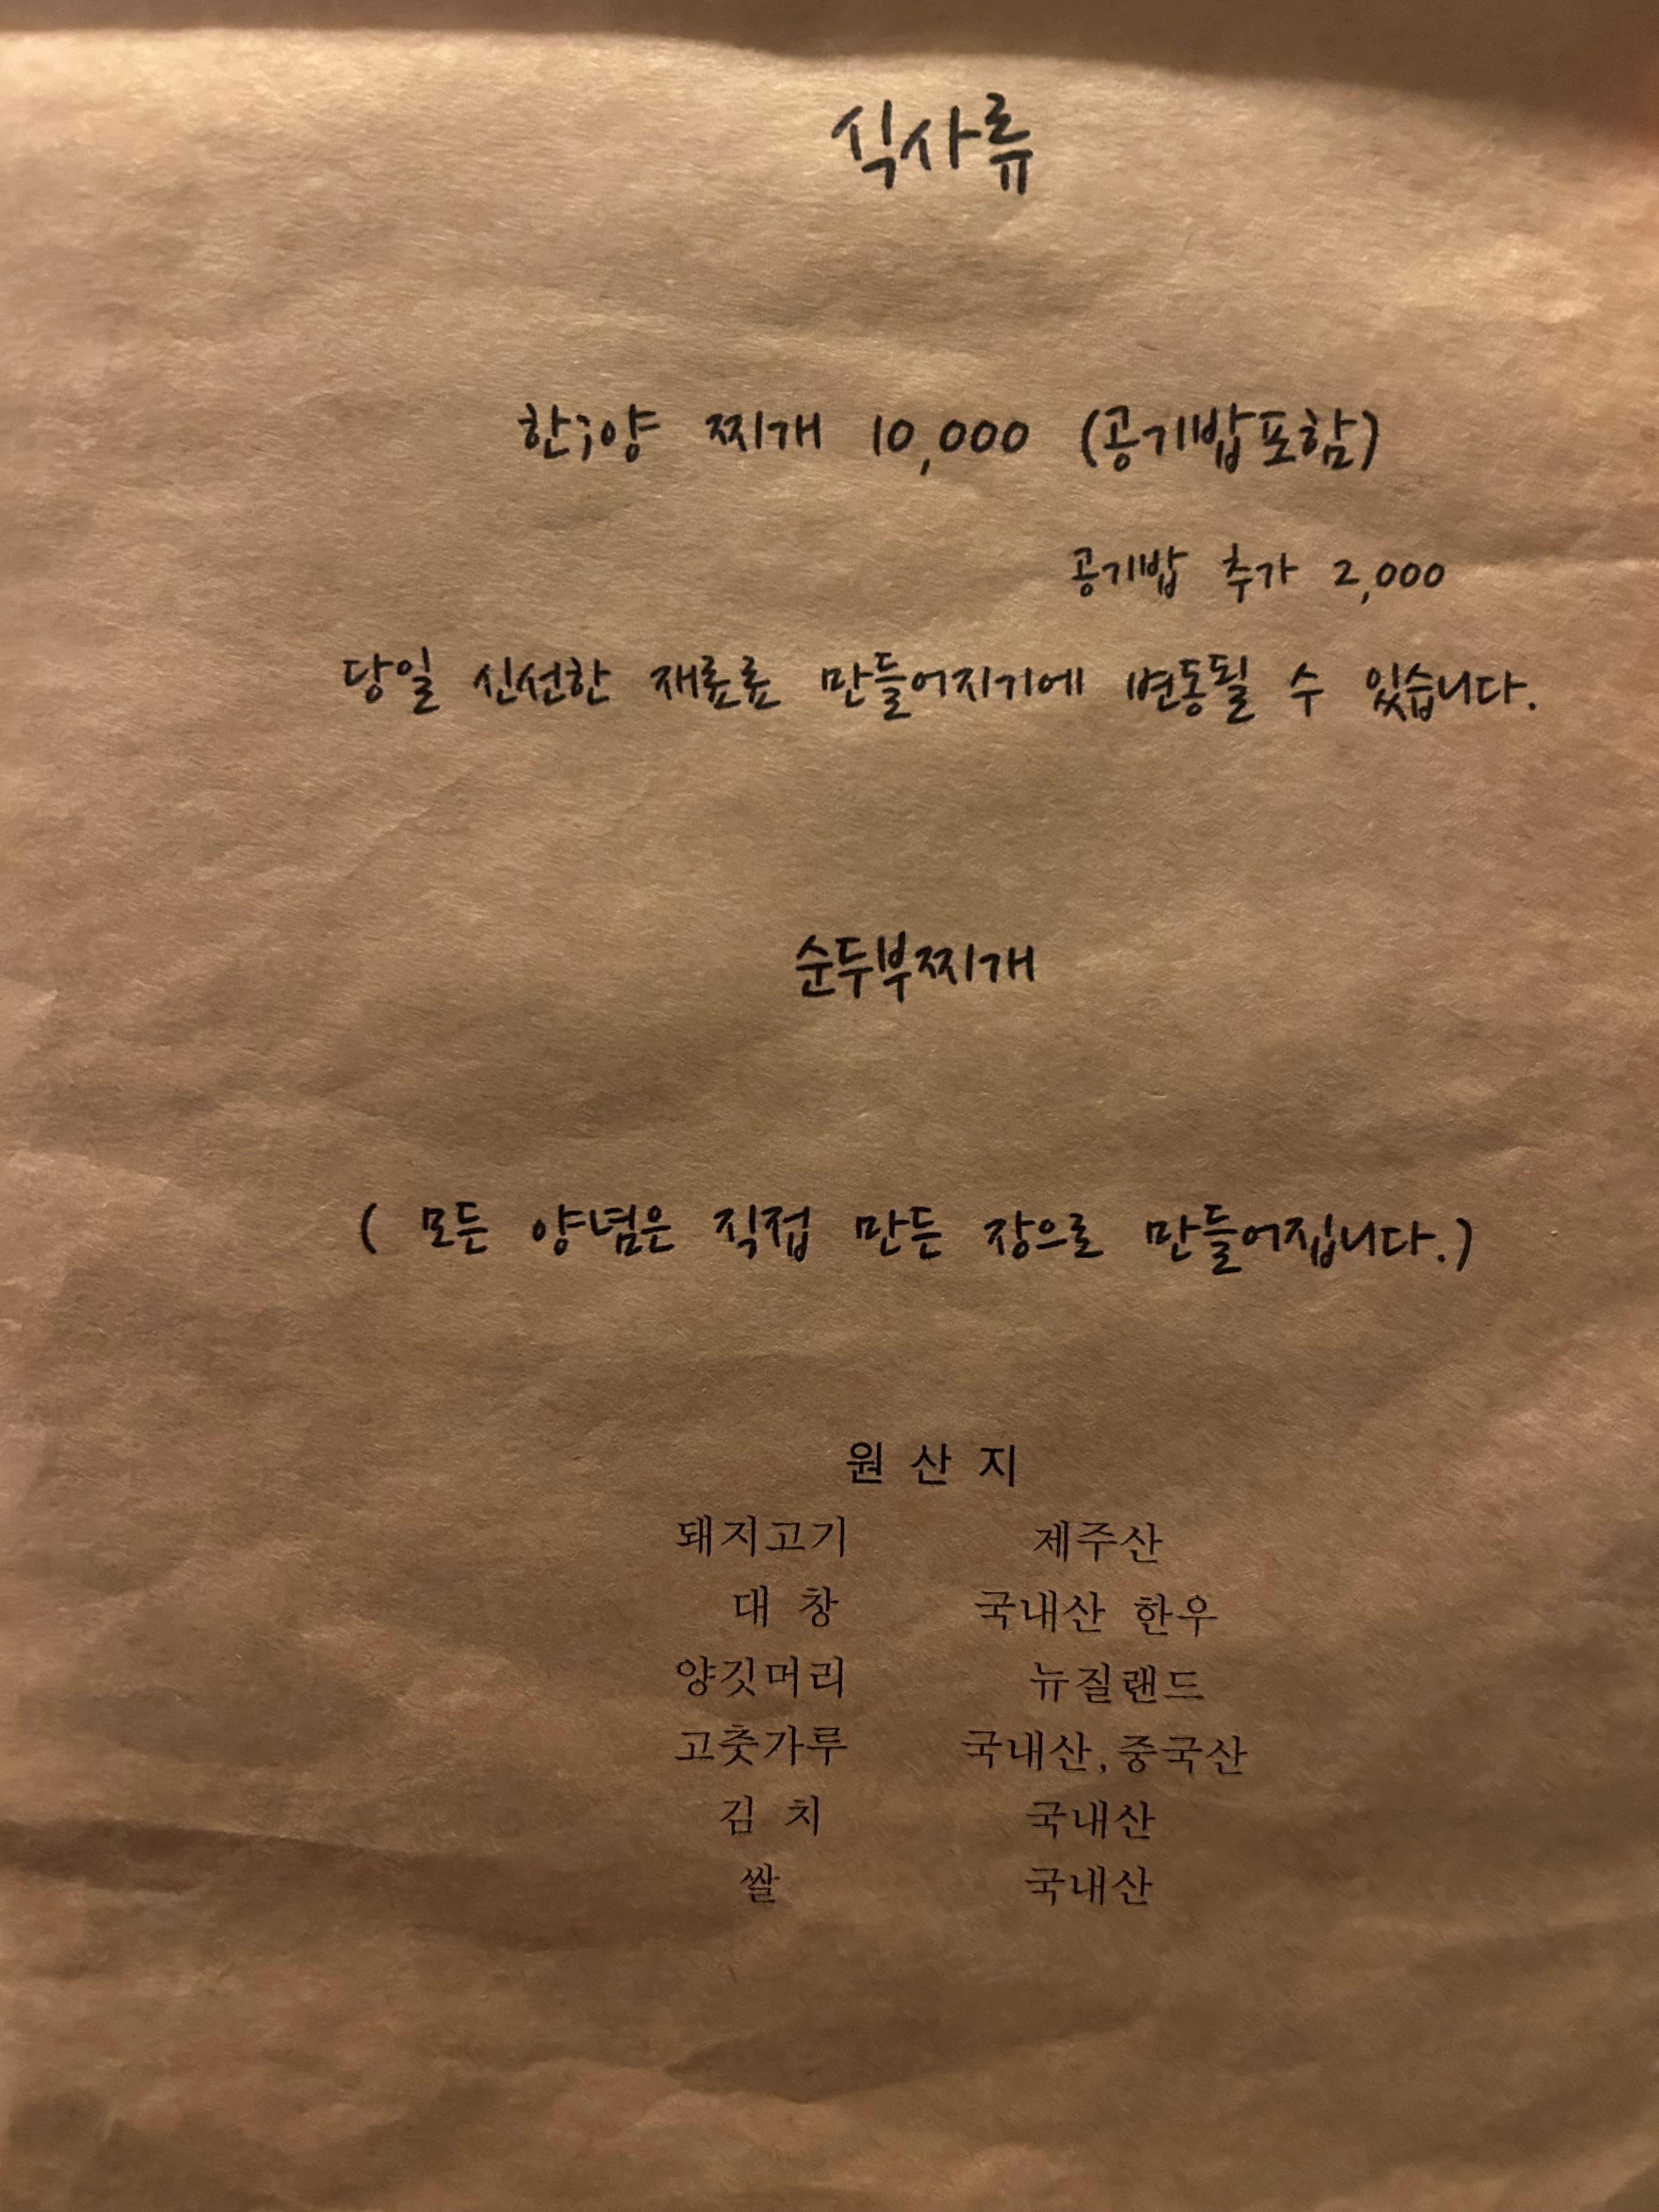 식사류
한;양 찌개 10,000 (공기밥포함)
공기밥 추가 2,000
당일 신선한 재료로 만들어지기에 변동될 수 있습니다.
순두부찌개
( 모든 양념은 직접 만든 장으로 만들어집니다.)
원 산 지
돼지고기 제주산
대 창 국내산 한우
양깃머리 뉴질랜드
고춧가루 국내산, 중국산
김 치 국내산
쌀 국내산